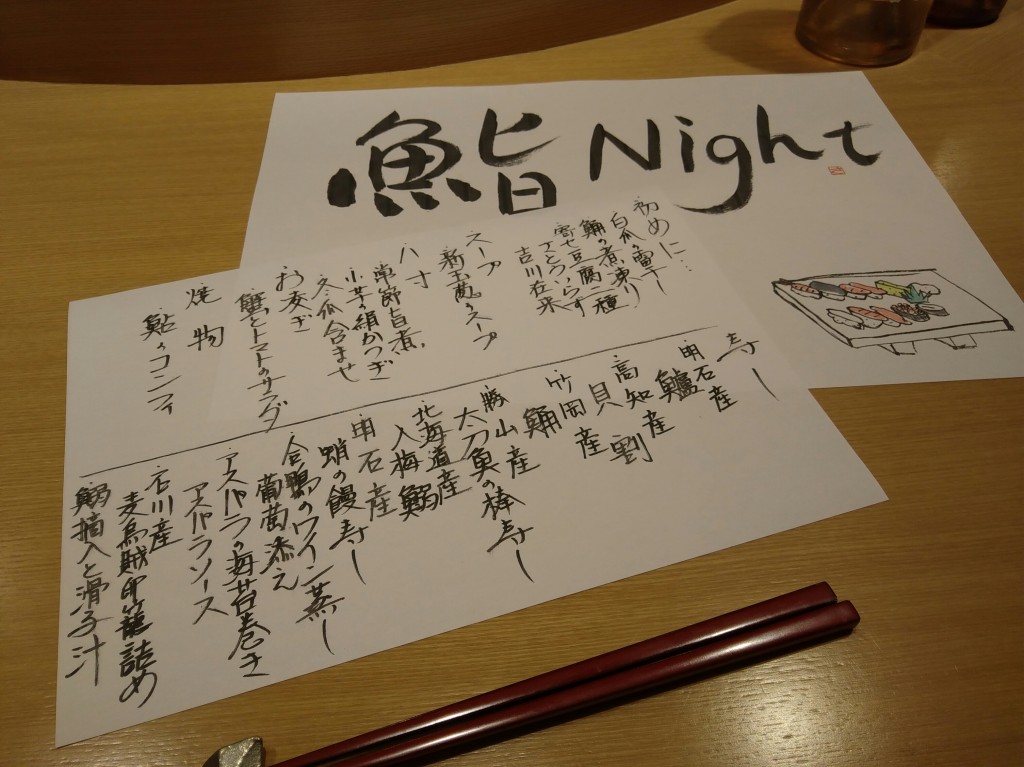 鮨 Night
初めに…
白瓜の雷干し
鮑の煮凍り
寄せ豆腐二種
吉川在来
スープ
新玉葱のスープ
八寸
小芋絹かつぎ
冬瓜合ませ
お凌ぎ
蟹とトマトのサラダ
焼物
鮎のコンフィ
寿し
明石産
鱸
高知産
貝割
竹岡産
鮑
勝山産
太刀魚の棒寿し
北海道産
入梅鰯
明石産
蛸の饅寿し
合鴨のワイン蒸し
葡萄添え
アスパラの海苔巻き
アスパラソース
石川産
麦烏賊印籠詰め
鰯摘入と滑子汁